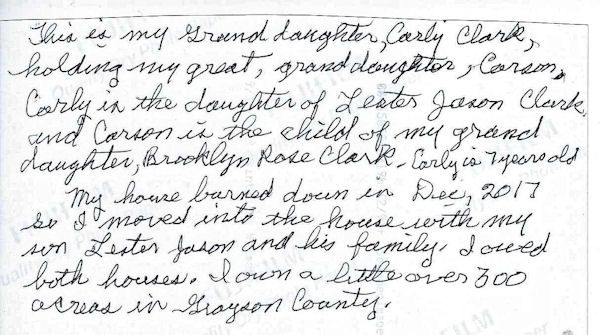 This is my Grand daughter, Carly Clark,
holding my great, grand daughter, Carson,
Carly is the daughter of Lester Jason Clark,
and Carson is the child of my grand
daughter, Brooklyn Rose Clark. Carly is 7 years old
My house burned down in Dec, 2017
so I moved into the house with my
son Lester Jason and his family. I owed
both houses. I own a little over 300
acreas in Grayson County.